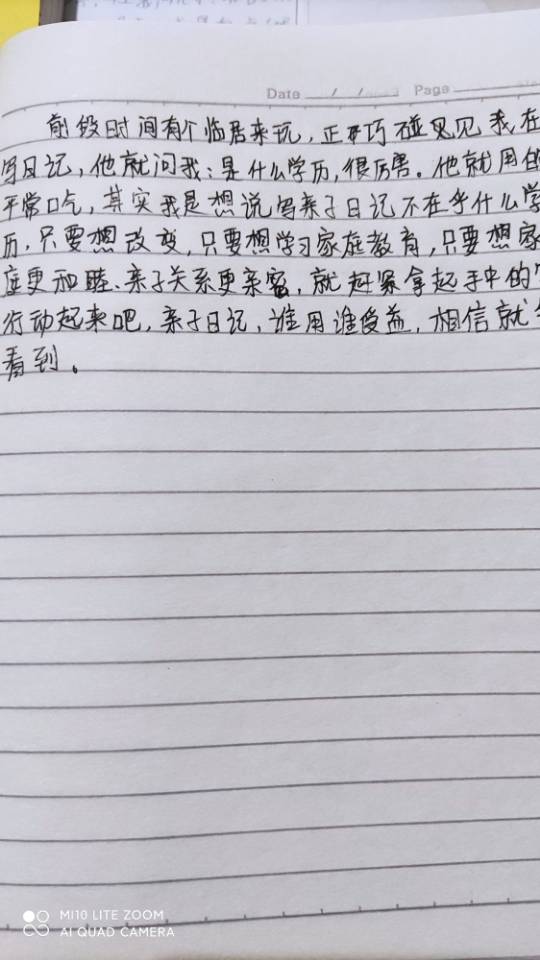 Date / / Page
前段时间有个临居来玩，正巧碰见见我在
写日记，他就问我：是什么学历，很厉害。他就用的
平常口气，其实我是想说写亲子日记不在乎什么学
历，只要想改变，只要想学习家庭教育，只要想家
庭更和睦、亲子关系更亲密，就赶紧拿起手中的
行动起来吧，亲子日记，谁用谁受益，相信就
看到。
MI10 LITE ZOOM
AI QUAD CAMERA